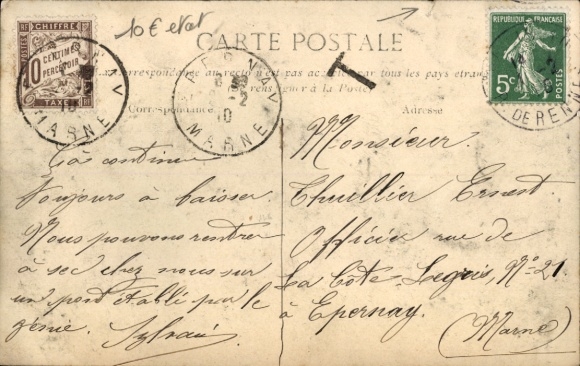 10 € etat
CHIFFRE
10 CENTIMES À PERCEVOIR
POSTES RF
TAXE
REPUBLIQUE FRANÇAISE
5c
POSTES
CARTE POSTALE
La correspondance au recto n'est pas acceptée par tous les pays étrangers
renseigner à la Poste
T
EPERNAY
2
10
MARNE
EPERNAY
2
10
MARNE
DE RENNES
Correspondance
Adresse
Ça continue
toujours à baisser.
Nous pouvons rentrer
à sec chez nous sur
un pont établi par le
génie. Sylvain
Monsieur
Thuillier Ernest.
Officier rue de
La Côte Legris, N° 21.
à Epernay.
(Marne)